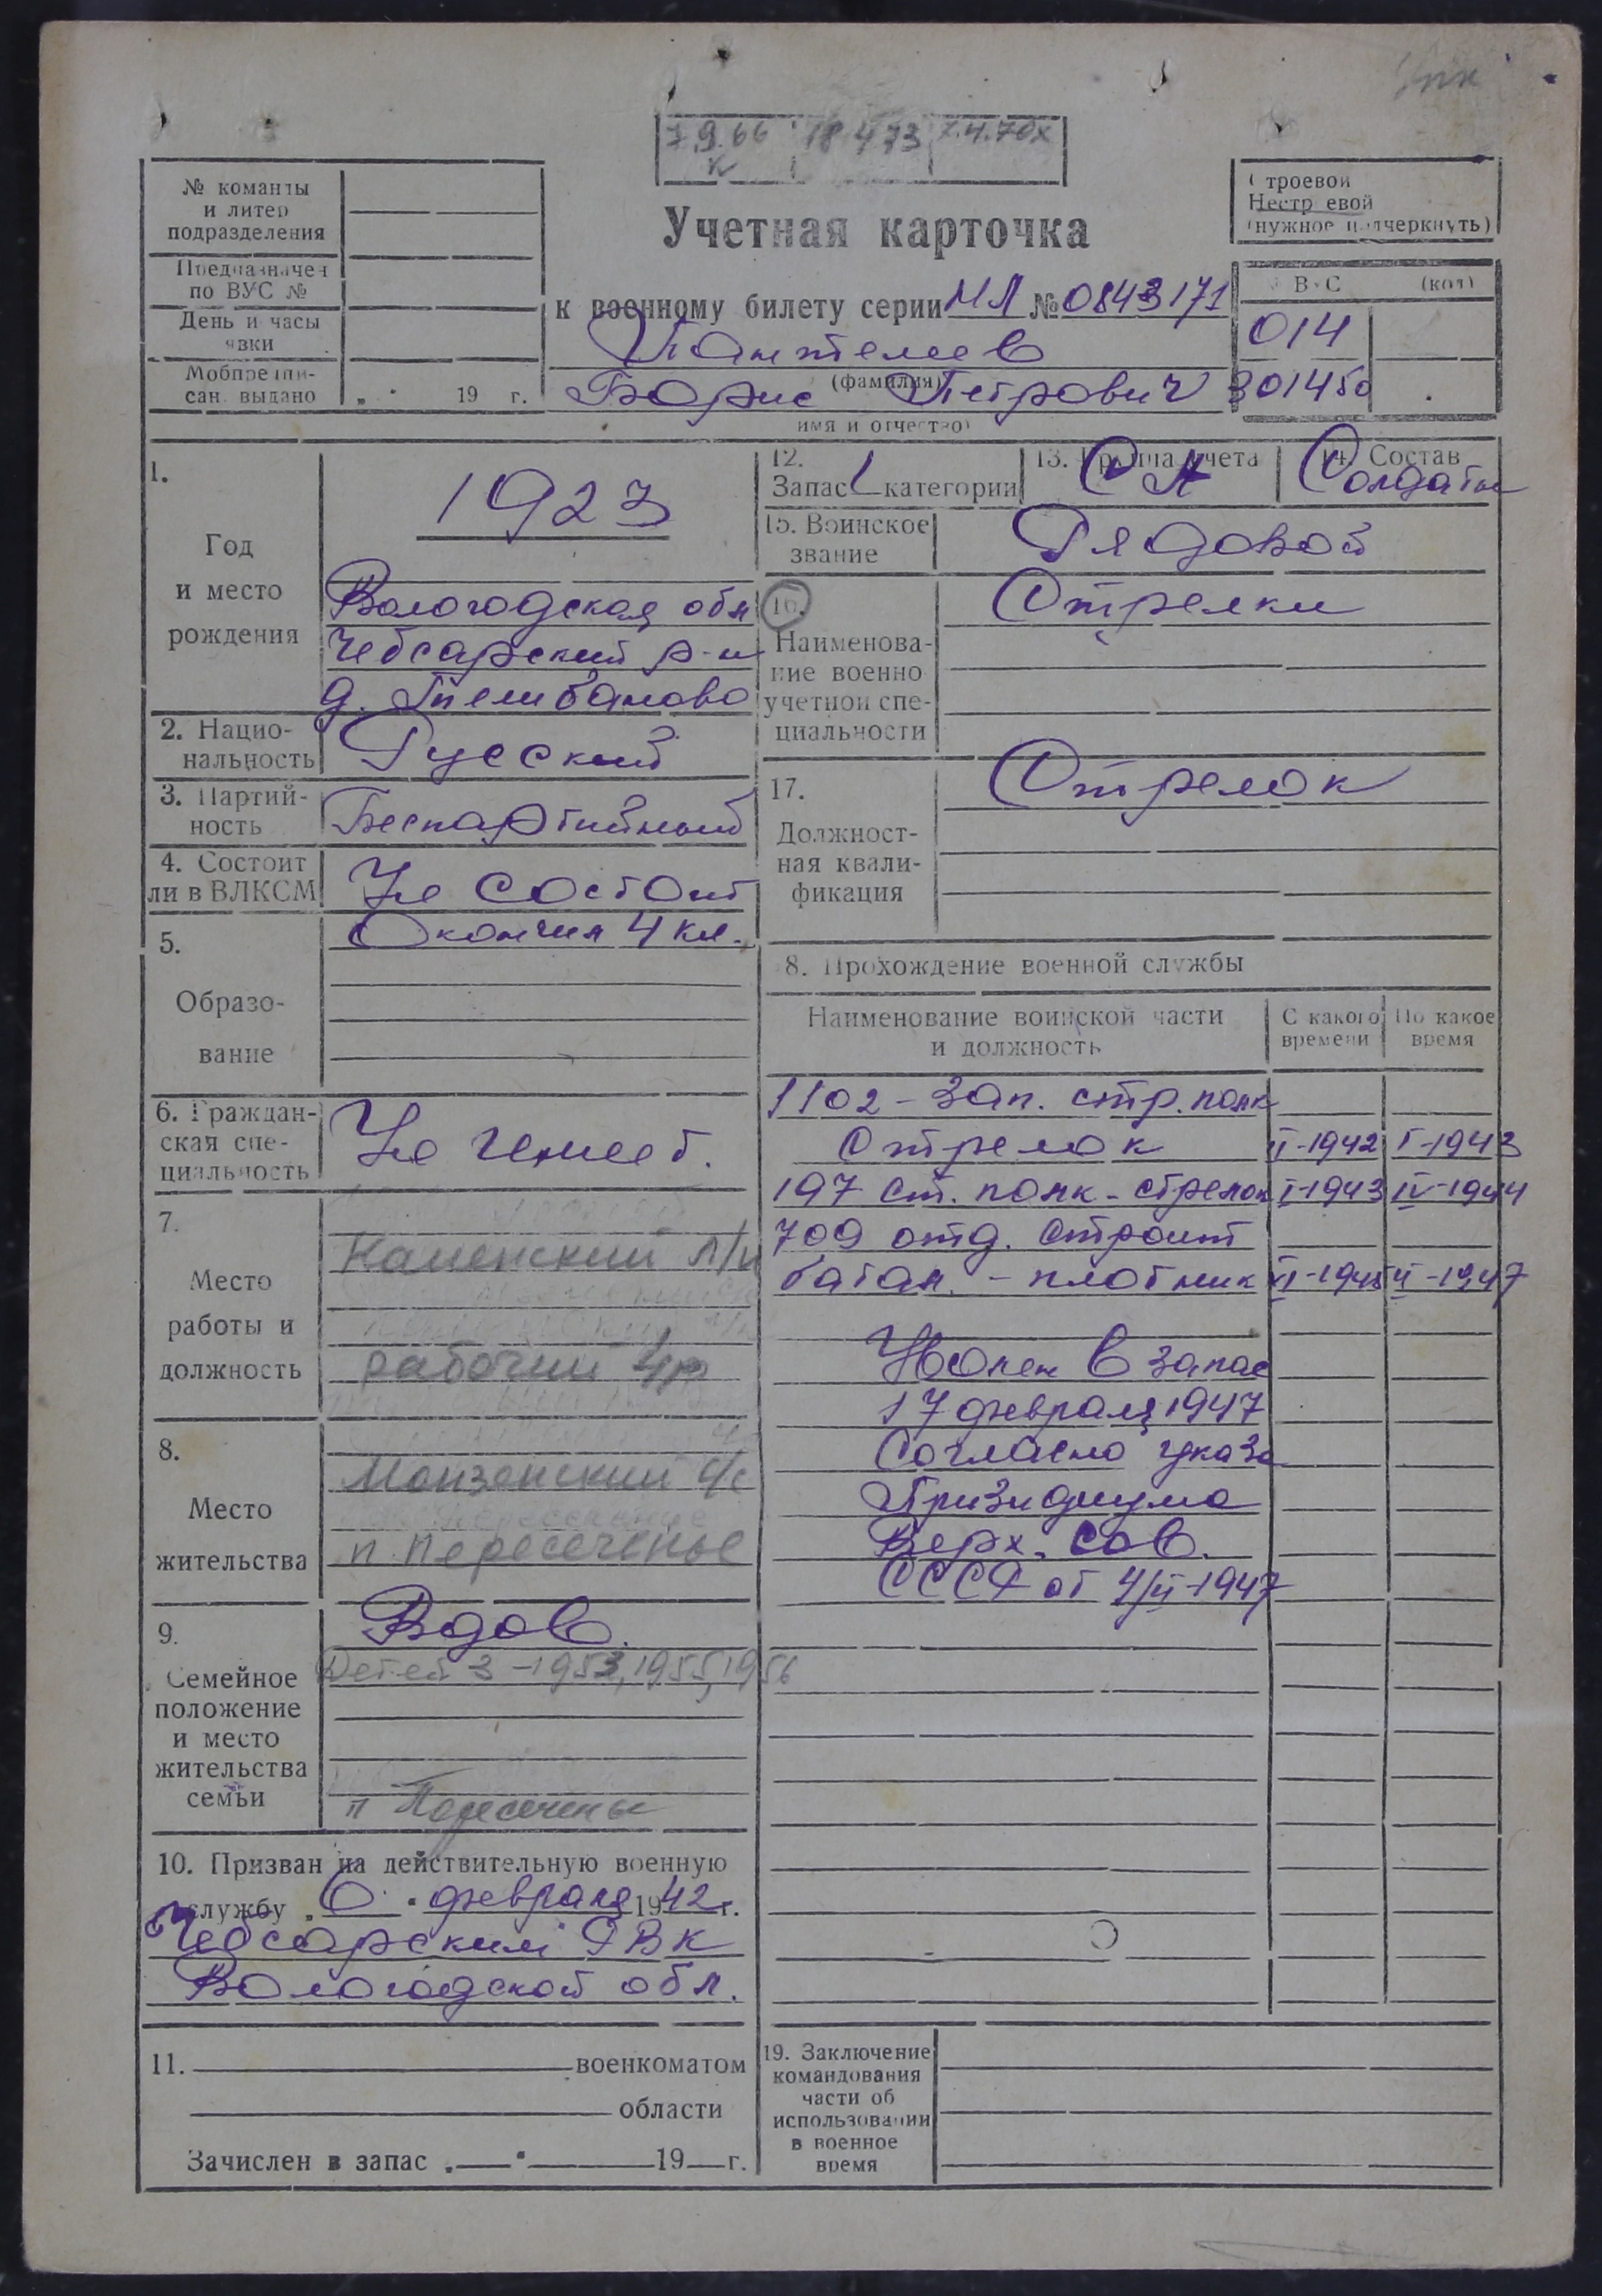 7.9.66 18 4 73 7.4.70х
№ команды
и литер
подразделения
Предназначен
по ВУС №
День и часы
явки
Мобпредпи-
сан. выдано „ " 19 г.
Учетная карточка
к военному билету серии НЛ № 0843171
Пантелеев
(фамилия)
Борис Петрович
имя и отчество)
Строевой
Нестроевой
(нужное подчеркнуть)
ВУС (код)
014
301450
1.
Год
и место
рождения
1923
Вологодская обл
Чебсарский р-н
д. Телибаново
2. Нацио-
нальность
Русский
3. Партий-
ность
Беспартийный
4. Состоит
ли в ВЛКСМ
Не состоит
5.
Образо-
вание
Окончил 4 кл.
6. Граждан-
ская спе-
циальность
Не имеет.
7.
Место
работы и
должность
Каменский л/п
рабочий 4р
8.
Место
жительства
Монзенский с/с
п. Пересеченье
9.
Семейное
положение
и место
жительства
семьи
Вдов.
Детей 3 - 1953, 1955, 1956
п Пересеченье
10. Призван на действительную военную
службу „ 6 " февраля 1942 г.
Чебсарским РВК
Вологодской обл.
11. военкоматом
области
Зачислен в запас „ " 19 г.
12.
Запас 1 категории
13. Группа учета
СА
14. Состав
Солдаты
15. Воинское
звание
Рядовой
16.
Наименова-
ние военно
учетной спе-
циальности
Стрелки
17.
Должност-
ная квали-
фикация
Стрелок
8. Прохождение военной службы
Наименование воинской части
и должность
С какого
времени
По какое
время
1102 - зап. стр. полк
Стрелок II-1942 I-1943
197 ст. полк - стрелок I-1943 IV-1944
709 отд. строит
батал. - плотник VI-1945 II-1947
Уволен в запас
17 февраля 1947
Согласно указа
Призидиума
Верх. Сов.
СССР от 4/II-1947
19. Заключение
командования
части об
использовании
в военное
время